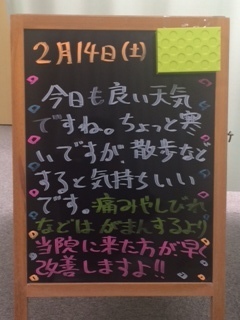 2月14日(土)
今日も良い天気
ですね。ちょっと寒
いですが、散歩など
すると気持ちいい
です。痛みやしびれ
などは がまんするより
当院に来た方が早く
改善しますよ!!